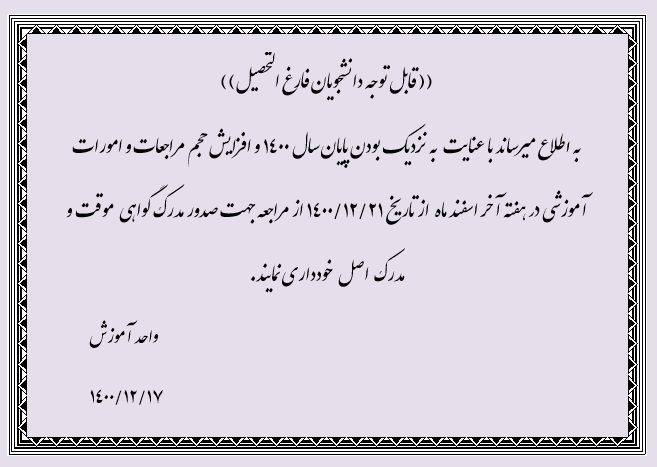 ((قابل توجه دانشجویان فارغ التحصیل))
به اطلاع میرساند با عنایت به نزدیک بودن پایان سال ۱۴۰۰ و افزایش حجم مراجعات و امورات
آموزشی در هفته آخر اسفند ماه از تاریخ ۱۴۰۰/۱۲/۲۱ از مراجعه جهت صدور مدرک گواهی موقت و
مدرک اصل خودداری نمایند.
واحد آموزش
۱۴۰۰/۱۲/۱۷